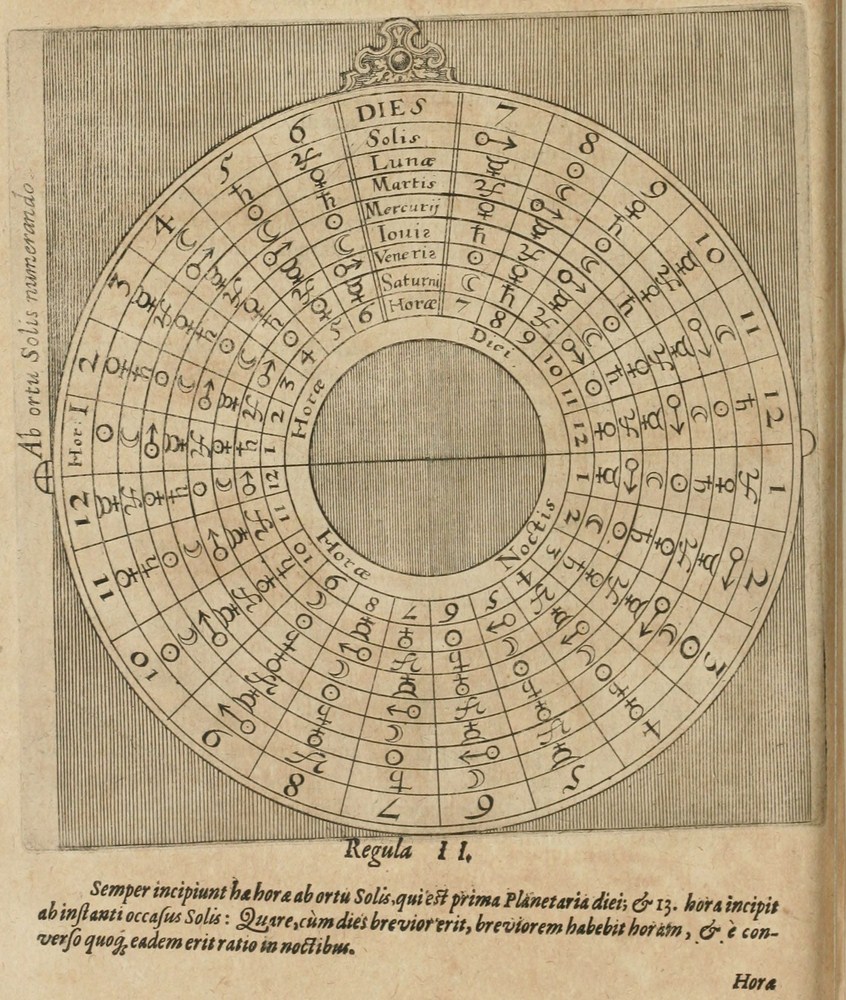 Ab ortu Solis numerando.
DIES
Solis
Lunæ
Martis
Mercurij
Iouis
Veneris
Saturni
Horæ
7
8
9
10
11
12
1
2
3
4
5
6
7
8
9
10
11
12
Hor: 1
2
3
4
5
6
7
8
9
10
11
12
1
2
3
4
5
6
7
8
9
10
11
12
1
2
3
4
5
6
Diei.
Noctis
Horæ
Horæ
Regula II.
Semper incipiunt hæ horæ ab ortu Solis, qui est prima Planetaria diei; & 13. hora incipit
ab instanti occasus Solis: Quare, cùm dies brevior erit, breviorem habebit horam, & è con-
verso quoq; eadem erit ratio in noctibus.
Horæ